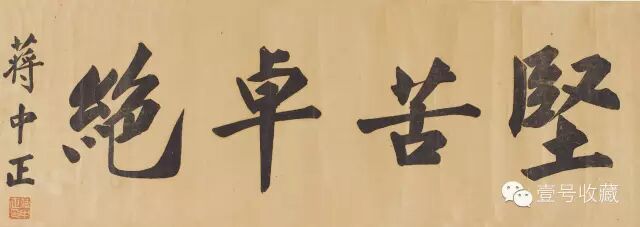 堅苦卓絕
蔣中正
壹号收藏